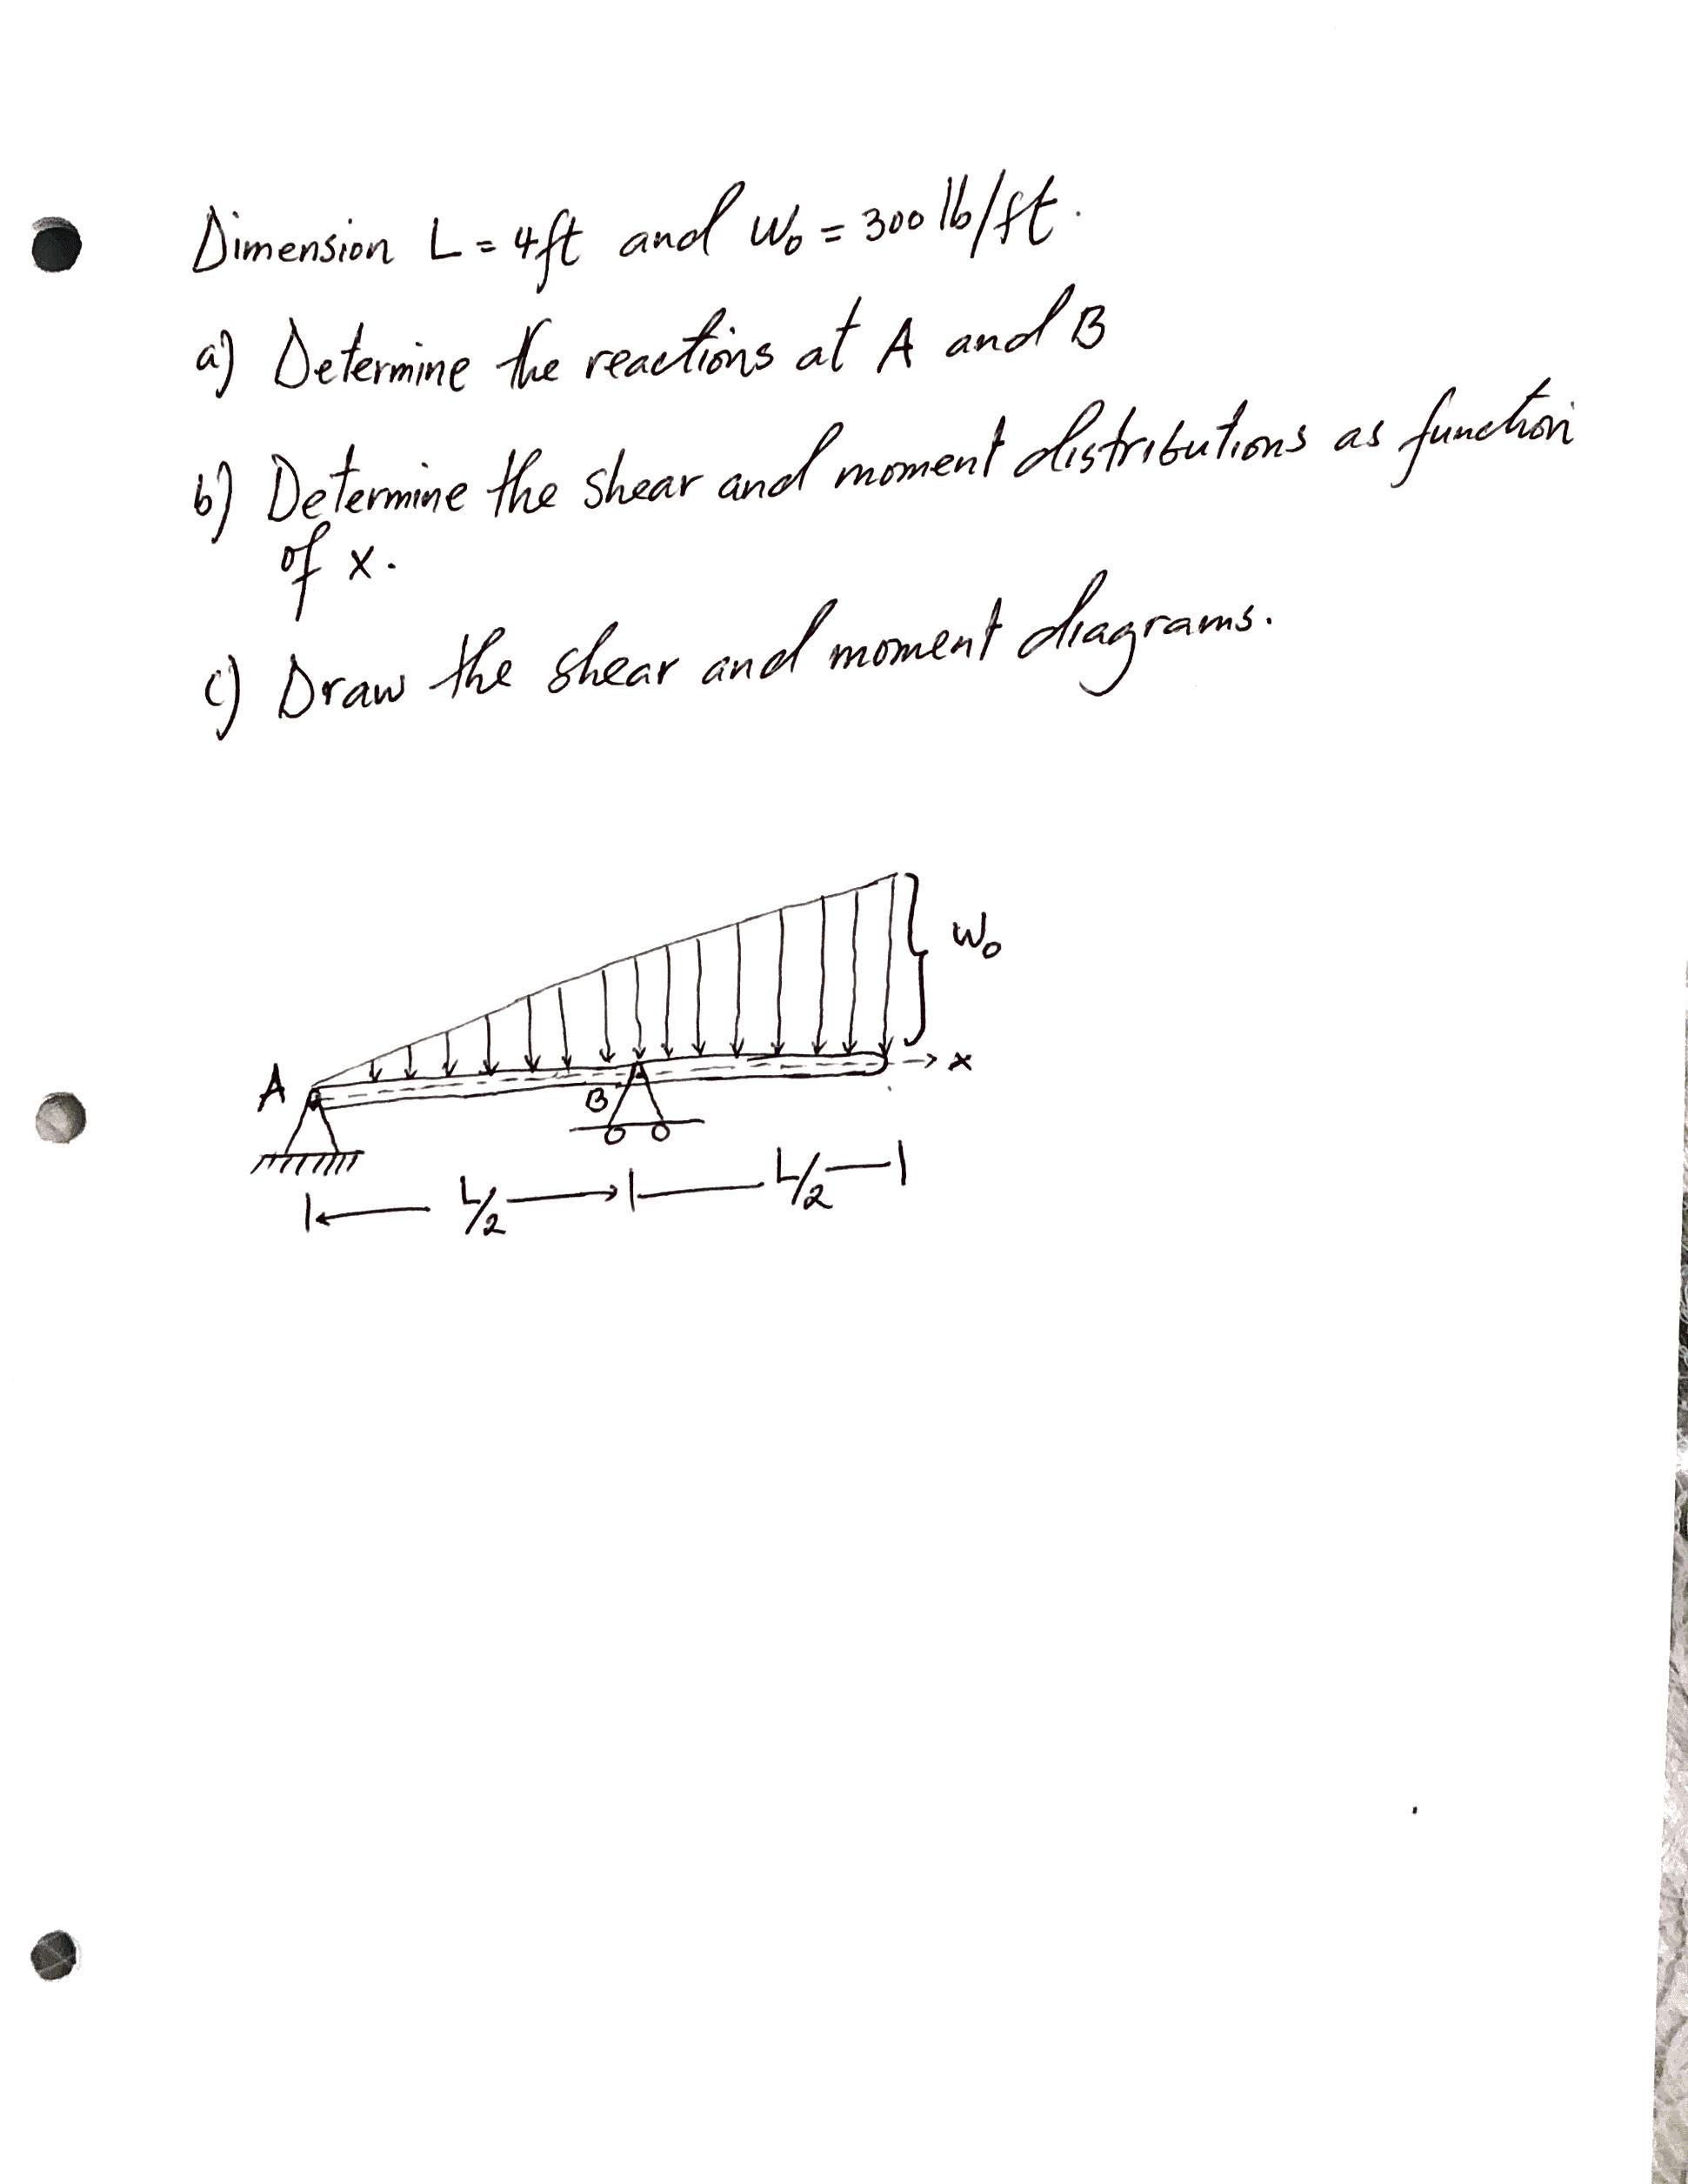 Dimension L = 4ft and W₀ = 300 lb/ft.
a) Determine the reactions at A and B
b) Determine the shear and moment distributions as function
of x.
c) Draw the shear and moment diagrams.
W₀
A
B
x
L/2
L/2